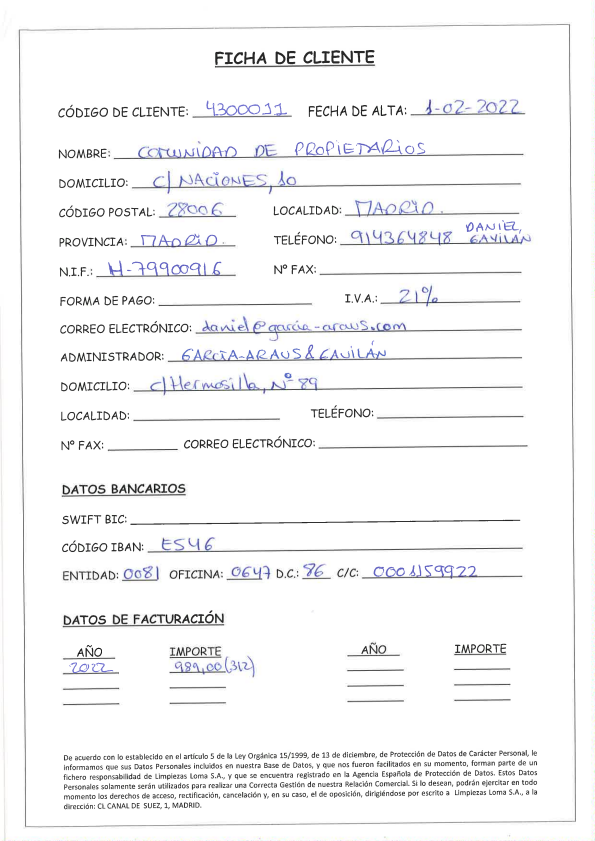 FICHA DE CLIENTE
CÓDIGO DE CLIENTE: 4300011 FECHA DE ALTA: 1-02-2022
NOMBRE: COMUNIDAD DE PROPIETARIOS
DOMICILIO: C/ NACIONES, 10
CÓDIGO POSTAL: 28006 LOCALIDAD: MADRID.
PROVINCIA: MADRID. TELÉFONO: 914364848 DANIEL, GAVILÁN
N.I.F.: H-79900916 Nº FAX:
FORMA DE PAGO: I.V.A.: 21%
CORREO ELECTRÓNICO: daniel@garcia-araus.com
ADMINISTRADOR: GARCIA-ARAUS & GAVILÁN
DOMICILIO: c/ Hermosilla, Nº 89
LOCALIDAD: TELÉFONO:
Nº FAX: CORREO ELECTRÓNICO:
DATOS BANCARIOS
SWIFT BIC:
CÓDIGO IBAN: ES46
ENTIDAD: 0081 OFICINA: 0647 D.C.: 86 C/C: 0001159922
DATOS DE FACTURACIÓN
AÑO IMPORTE AÑO IMPORTE
2022 989,00 (312)
De acuerdo con lo establecido en el artículo 5 de la Ley Orgánica 15/1999, de 13 de diciembre, de Protección de Datos de Carácter Personal, le
informamos que sus Datos Personales incluidos en nuestra Base de Datos, y que nos fueron facilitados en su momento, forman parte de un
fichero responsabilidad de Limpiezas Loma S.A., y que se encuentra registrado en la Agencia Española de Protección de Datos. Estos Datos
Personales solamente serán utilizados para realizar una Correcta Gestión de nuestra Relación Comercial. Si lo desean, podrán ejercitar en todo
momento los derechos de acceso, rectificación, cancelación y, en su caso, el de oposición, dirigiéndose por escrito a Limpiezas Loma S.A., a la
dirección: CL CANAL DE SUEZ, 1, MADRID.